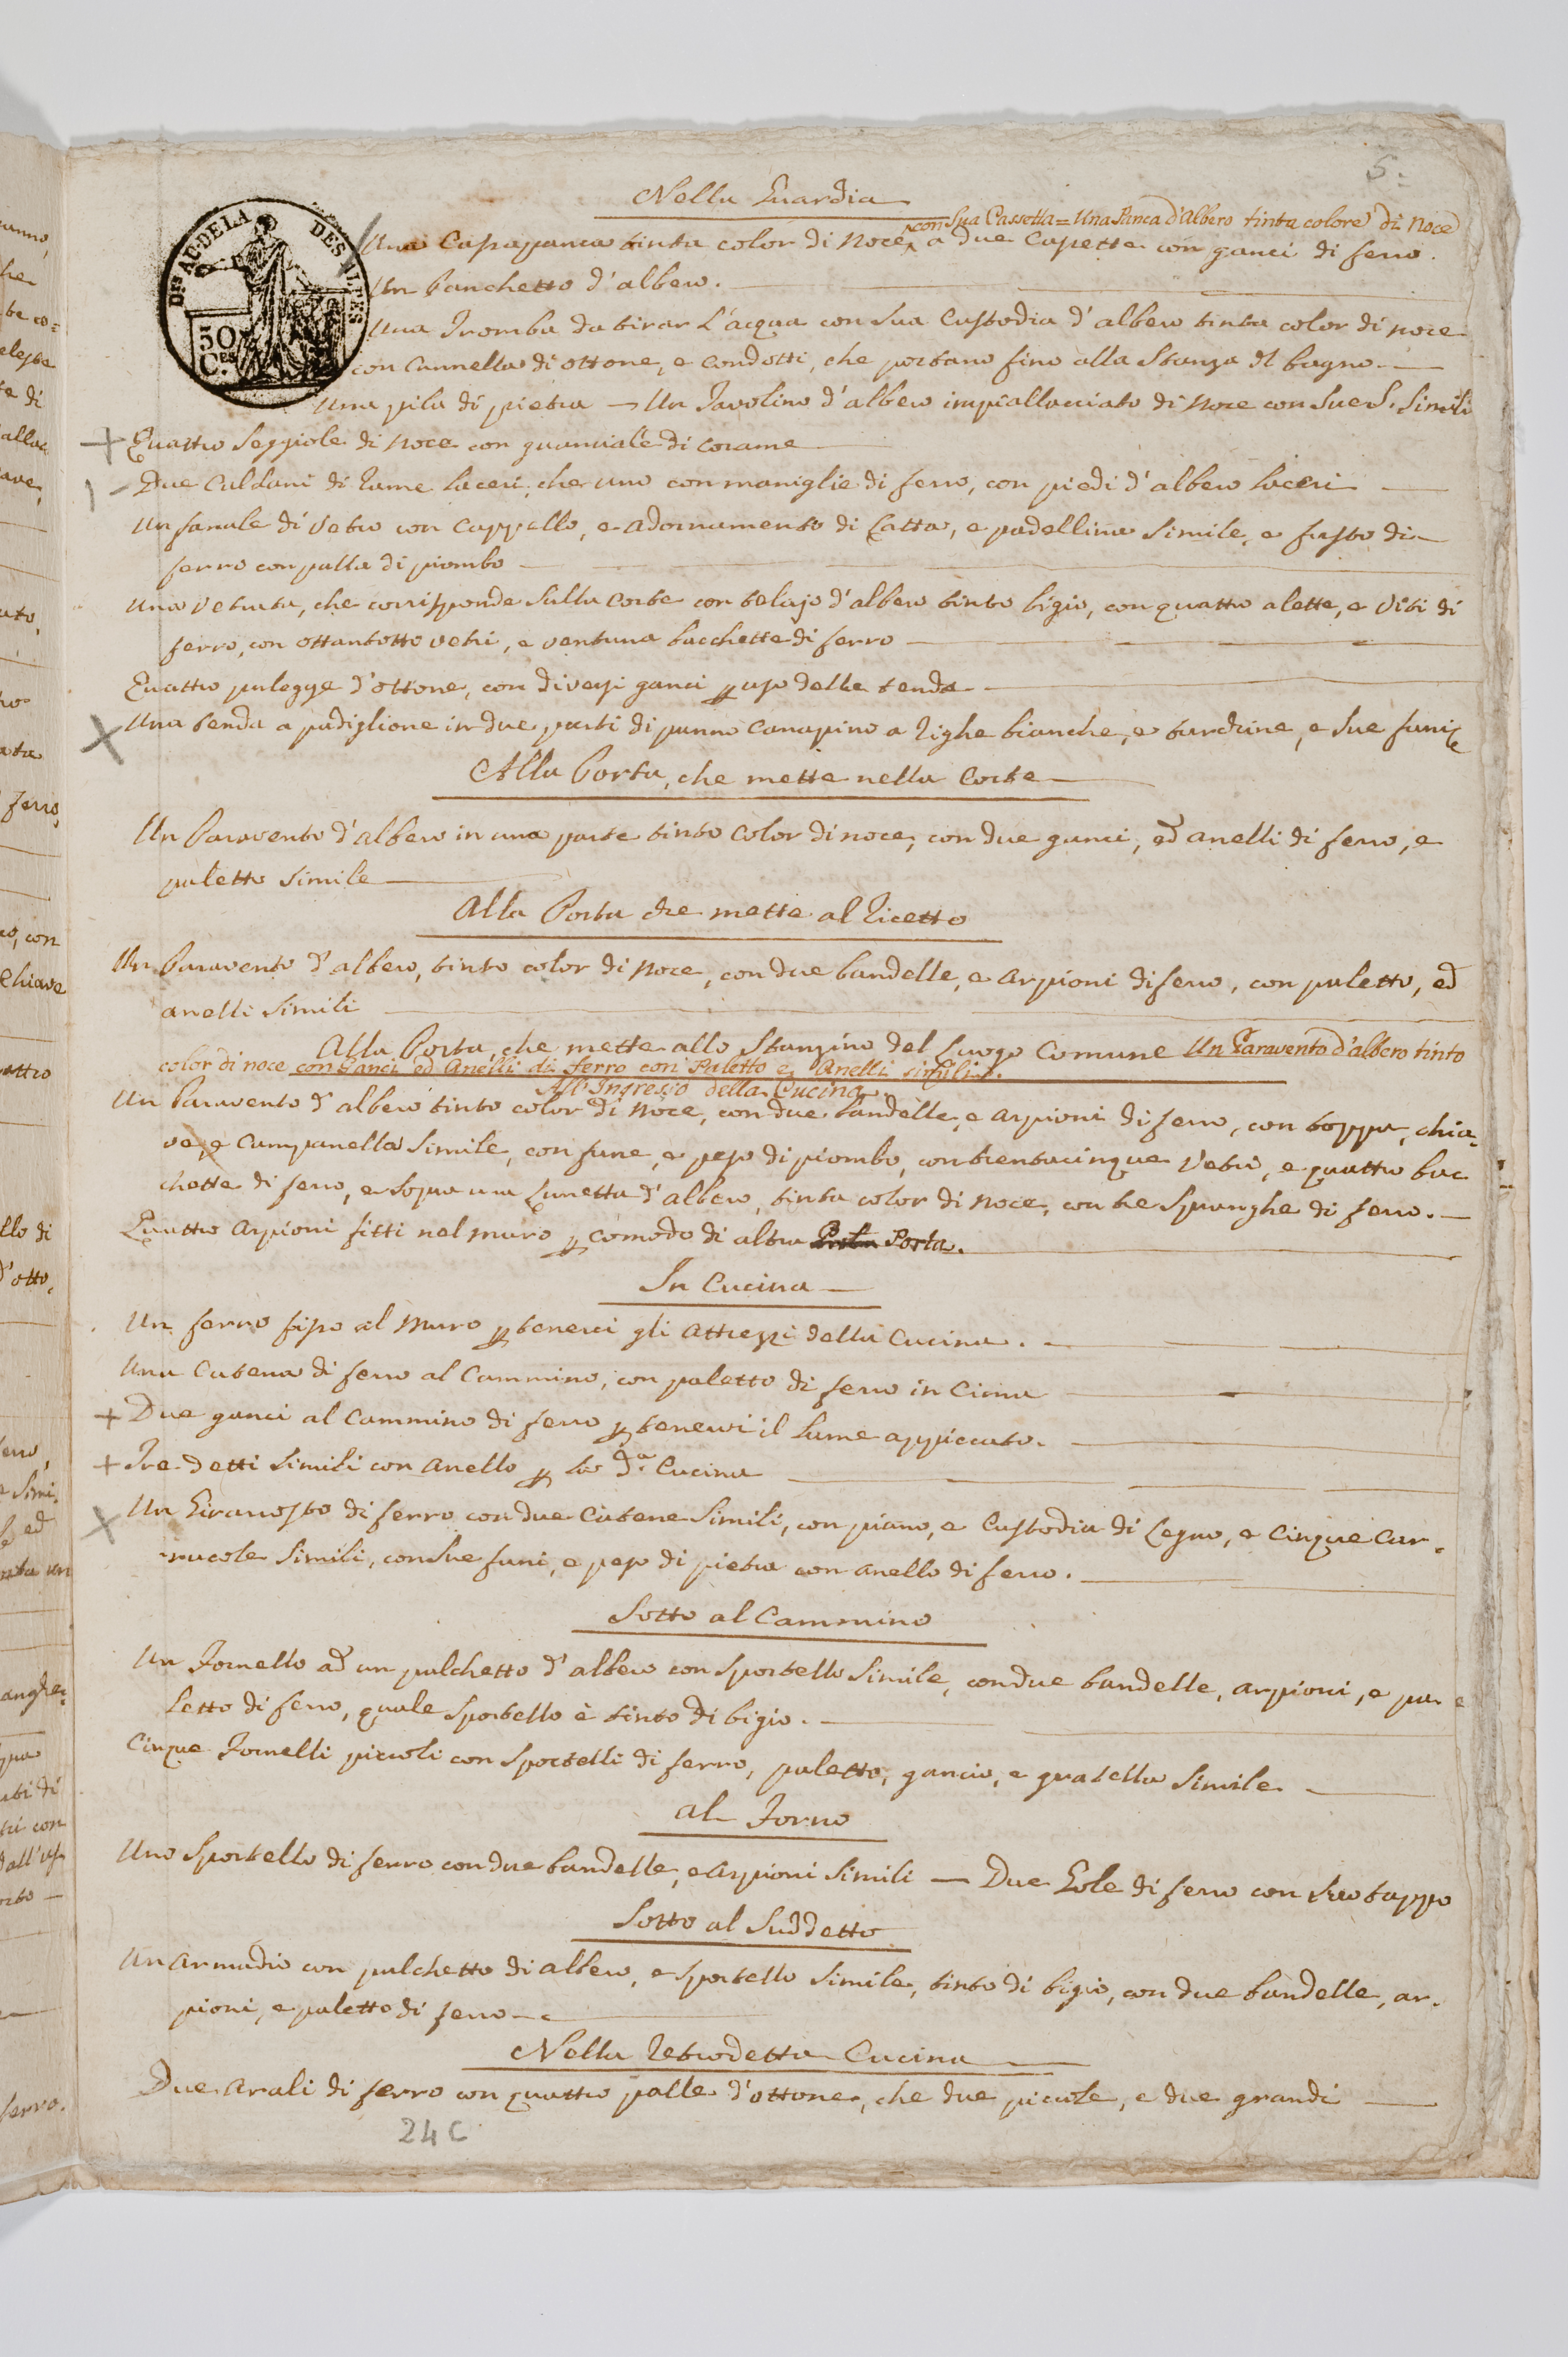 5.
Nella Guardia
con sua Cassetta = Una Panca d'Albero tinta colore di Noce
Una Casapanca tinta color di Noce, a due Capette con ganci di ferro.
Un Panchetto d'albero.
DON AU-DELA DES ALPES
50 Ces
Una Tromba da tirar l'acqua con sua Custodia d'albero tinta color di noce
con Cannella di ottone, e Condotti, che portano fino alla Stanza del bagno.
Una pila di pietra — Un Tavolino d'albero impiallacciato di Noce con sue Simili
+ Quattro Seggiole di Noce con guanciale di Corame
Due Caldani di Rame laceri, che uno con maniglie di ferro, con piedi d'albero laceri
Un fanale di Vetro con Cappello, e adornamento di Latta, e padellina Simile, e fusto di
ferro con palla di piombo
Una Vetrata, che corrisponde sulla Corte con telajo d'albero tinto bigio, con quattro alette, e Viti di
ferro, con ottantotto vetri, e ventuna bacchette di ferro
Quattro pulegge d'ottone, con diversi ganci p uso delle tende
X Una tenda a padiglione in due parti di panno Canapino a righe bianche, e turchine, e sue funi
Alla Porta, che mette nella Corte
Un Paravento d'albero in una parte tinto Color di noce, con due ganci, ed anelli di ferro, e
paletto simile
Alla Porta che mette al Ricetto
Un Paravento d'albero, tinto color di Noce, con due bandelle, e arpioni di ferro, con paletto, ed
anelli simili
Alla Porta, che mette allo Stanzino del Luogo Comune Un Paravento d'albero tinto
color di noce con Ganci ed Anelli di ferro con Paletto e Anelli simili.
All'Ingresso della Cucina
Un Paravento d'albero tinto color di Noce, con due bandelle, e arpioni di ferro, con toppa, chia-
ve, e Campanella simile, con fune, e peso di piombo, con trentacinque Vetri, e quattro bac
chette di ferro, e sopra una Lunetta d'albero, tinta color di Noce, con tre Spranghe di ferro.
Quattro arpioni fitti nel muro p comodo di altra Porta Porta.
In Cucina
Un ferro fisso al Muro p tenerci gli Attrezzi della Cucina.
Una Catena di ferro al Cammino, con paletto di ferro in Cima
+ Due ganci al Cammino di ferro p tenervi il lume appiccato.
+ Tre detti Simili con Anello p la da. Cucina
X Un Girarrosto di ferro con due Catene Simili, con piano, e Custodia di Legno, e Cinque Car-
rucole Simili, con sue funi, e peso di pietra con anello di ferro.
Sotto al Cammino
Un Fornello ad un palchetto d'albero con Sportello Simile, con due bandelle, arpioni, e pa-
letto di ferro, quale Sportello è tinto di bigio.
Cinque Fornelli piccoli con Sportelli di ferro, paletto, gancio, e gratella Simile
al Forno
Uno Sportello di ferro con due bandelle, e arpioni Simili — Due Gole di ferro con suo tappo
Sotto al Suddetto
Un Armadio con palchetto di albero, e Sportello Simile, tinto di bigio, con due bandelle, ar-
pioni, e paletto di ferro
Nella Retrodetta Cucina
Due Arali di ferro con quattro palle d'ottone, che due piccole, e due grandi
24 C